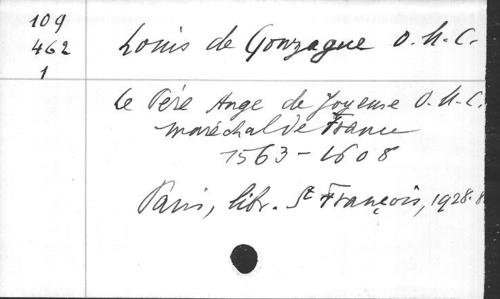 109
462
1
Louis de Gonzague O.M.C.
Le Père Ange de Joyeuse O.M.C.
maréchal de France
1563-1608
Paris, libr. St François, 1928. 8